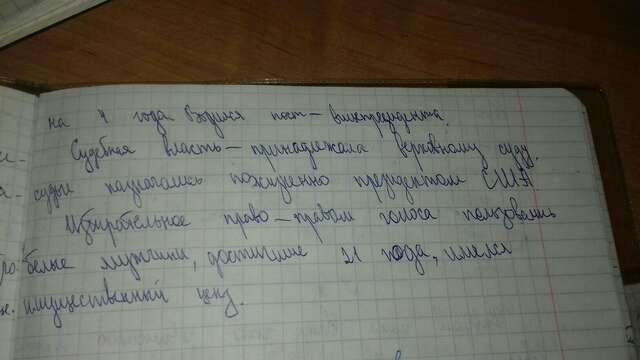 на 4 года Вводился пост – вицепрезидента.
Судебная власть – принадлежала верховному суду,
судьи назначались пожизненно президентом США.
Избирательное право – правом голоса пользовались
белые мужчины, достигшие 21 года, имелся
имущественный ценз.